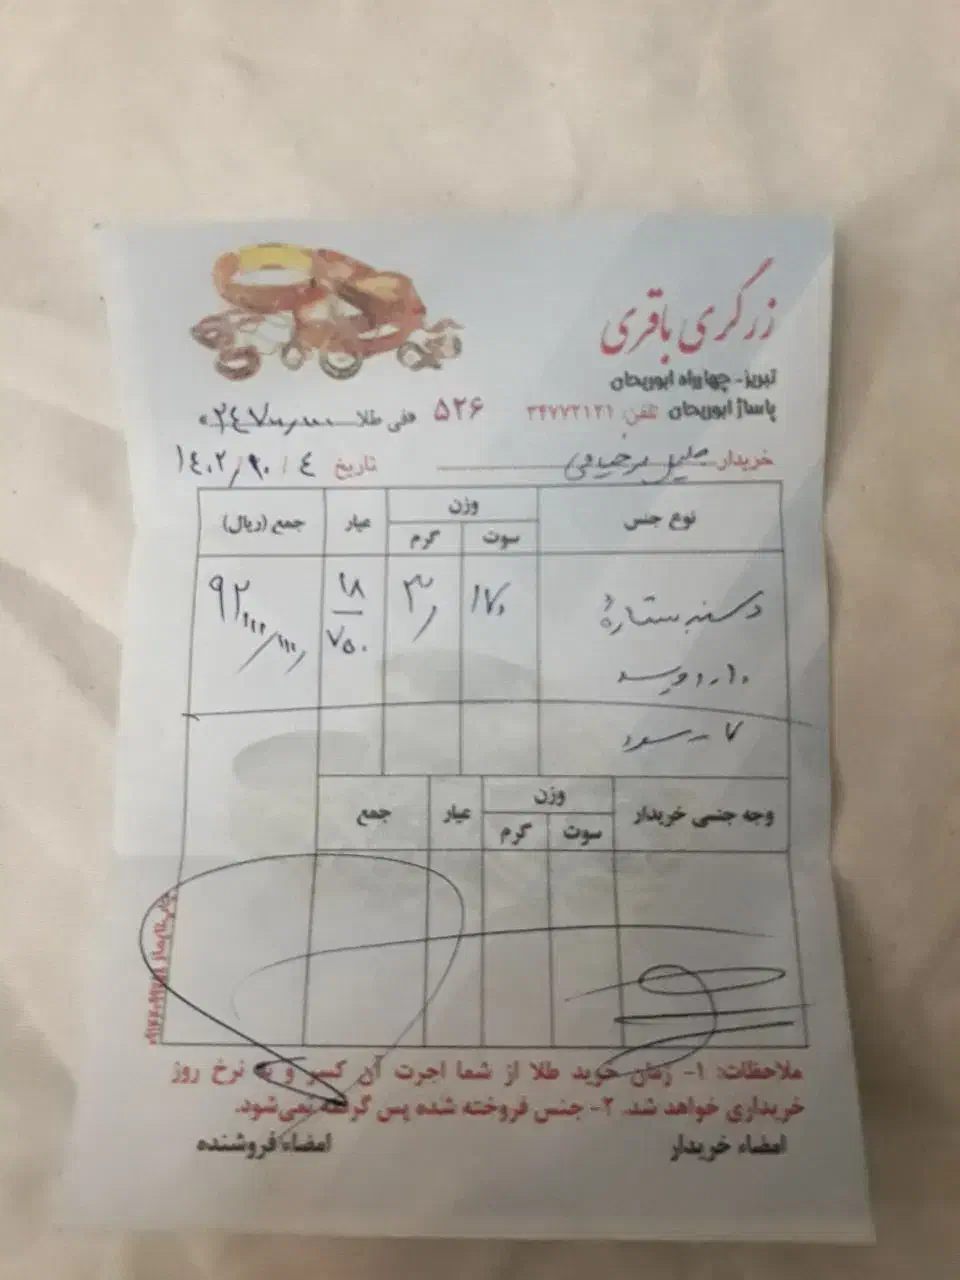 زرگری باقری
تبریز - چهارراه ابوریحان
پاساژ ابوریحان تلفن: ۳۴۷۷۳۱۳۱ ۵۲۶ فی طلا
خریدار تاریخ ۱۴۰۲/۱۰/۴
نوع جنس وزن عیار جمع (ریال)
سوت گرم
دستبند ستاره ۱۷۰ ۳ ۱۸ ۹۲
۷۵۰
۷
وجه جنسی خریدار وزن عیار جمع
سوت گرم
ملاحظات: ۱- زمان خرید طلا از شما اجرت آن کسر و به نرخ روز
خریداری خواهد شد. ۲- جنس فروخته شده پس گرفته نمی‌شود.
امضاء خریدار امضاء فروشنده